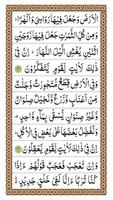 الْاَرْضَ وَجَعَلَ فِيْهَا رَوَاسِيَ وَاَنْهٰرًا ؕ
وَمِنْ كُلِّ الثَّمَرٰتِ جَعَلَ فِيْهَا زَوْجَيْنِ
اثْنَيْنِ يُغْشِي الَّيْلَ النَّهَارَ ؕ اِنَّ فِيْ
ذٰلِكَ لَاٰيٰتٍ لِّقَوْمٍ يَّتَفَكَّرُوْنَ ۝
وَفِي الْاَرْضِ قِطَعٌ مُّتَجٰوِرٰتٌ وَّجَنّٰتٌ
مِّنْ اَعْنَابٍ وَّزَرْعٌ وَّنَخِيْلٌ صِنْوَانٌ
وَّغَيْرُ صِنْوَانٍ يُّسْقٰى بِمَآءٍ وَّاحِدٍ ۫
وَنُفَضِّلُ بَعْضَهَا عَلٰى بَعْضٍ فِي الْاُكُلِ ؕ
اِنَّ فِيْ ذٰلِكَ لَاٰيٰتٍ لِّقَوْمٍ يَّعْقِلُوْنَ ۝
وَاِنْ تَعْجَبْ فَعَجَبٌ قَوْلُهُمْ ءَاِذَا
كُنَّا تُرٰبًا ءَاِنَّا لَفِيْ خَلْقٍ جَدِيْدٍ ؕ